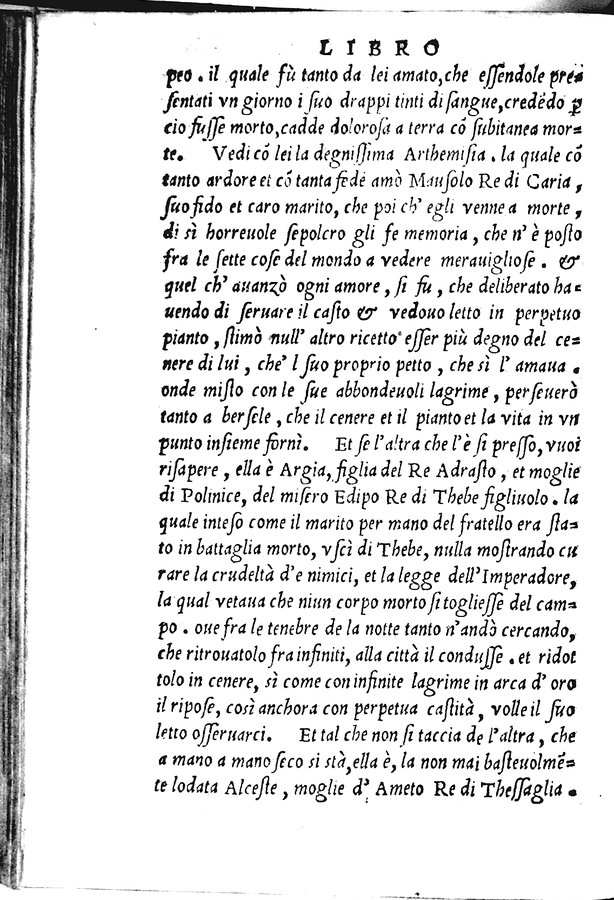 LIBRO
peo. il quale fù tanto da lei amato, che eſſendole preſ
ſentati vn giorno i ſuo drappi tinti di ſangue, credẽdo ꝑ
cio fuſſe morto, cadde doloroſa a terra cõ ſubitanea mor-
te. Vedi cõ lei la degniſſima Arthemiſia. la quale cõ
tanto ardore et cõ tanta fede amò Mauſolo Re di Caria,
ſuo fido et caro marito, che poi ch' egli venne a morte,
di sì horreuole ſepolcro gli fe memoria, che n' è poſto
fra le ſette coſe del mondo a vedere merauiglioſe. &
quel ch' auanzò ogni amore, ſi fu, che deliberato ha-
uendo di ſeruare il caſto & vedouo letto in perpetuo
pianto, ſtimò null' altro ricetto eſſer più degno del ce-
nere di lui, che' l ſuo proprio petto, che sì l' amaua.
onde miſto con le ſue abbondeuoli lagrime, perſeuerò
tanto a berſele, che il cenere et il pianto et la vita in vn
punto inſieme fornì. Et ſe l'altra che l'è ſi preſſo, vuoi
riſapere, ella è Argia, figlia del Re Adraſto, et moglie
di Polinice, del miſero Edipo Re di Thebe figliuolo. la
quale inteſo come il marito per mano del fratello era ſta-
to in battaglia morto, vſcì di Thebe, nulla moſtrando cu
rare la crudeltà d'e nimici, et la legge dell'Imperadore,
la qual vetaua che niun corpo morto ſi toglieſſe del cam-
po. oue fra le tenebre de la notte tanto n'andò cercando,
che ritrouatolo fra infiniti, alla città il conduſſe. et ridot
tolo in cenere, sì come con infinite lagrime in arca d' oro
il ripoſe, così anchora con perpetua caſtità, volle il ſuo
letto oſſeruarci. Et tal che non ſi taccia de l'altra, che
a mano a mano ſeco si stà, ella è, la non mai baſteuolmẽ-
te lodata Alceſte, moglie d' Ameto Re di Theſſaglia.